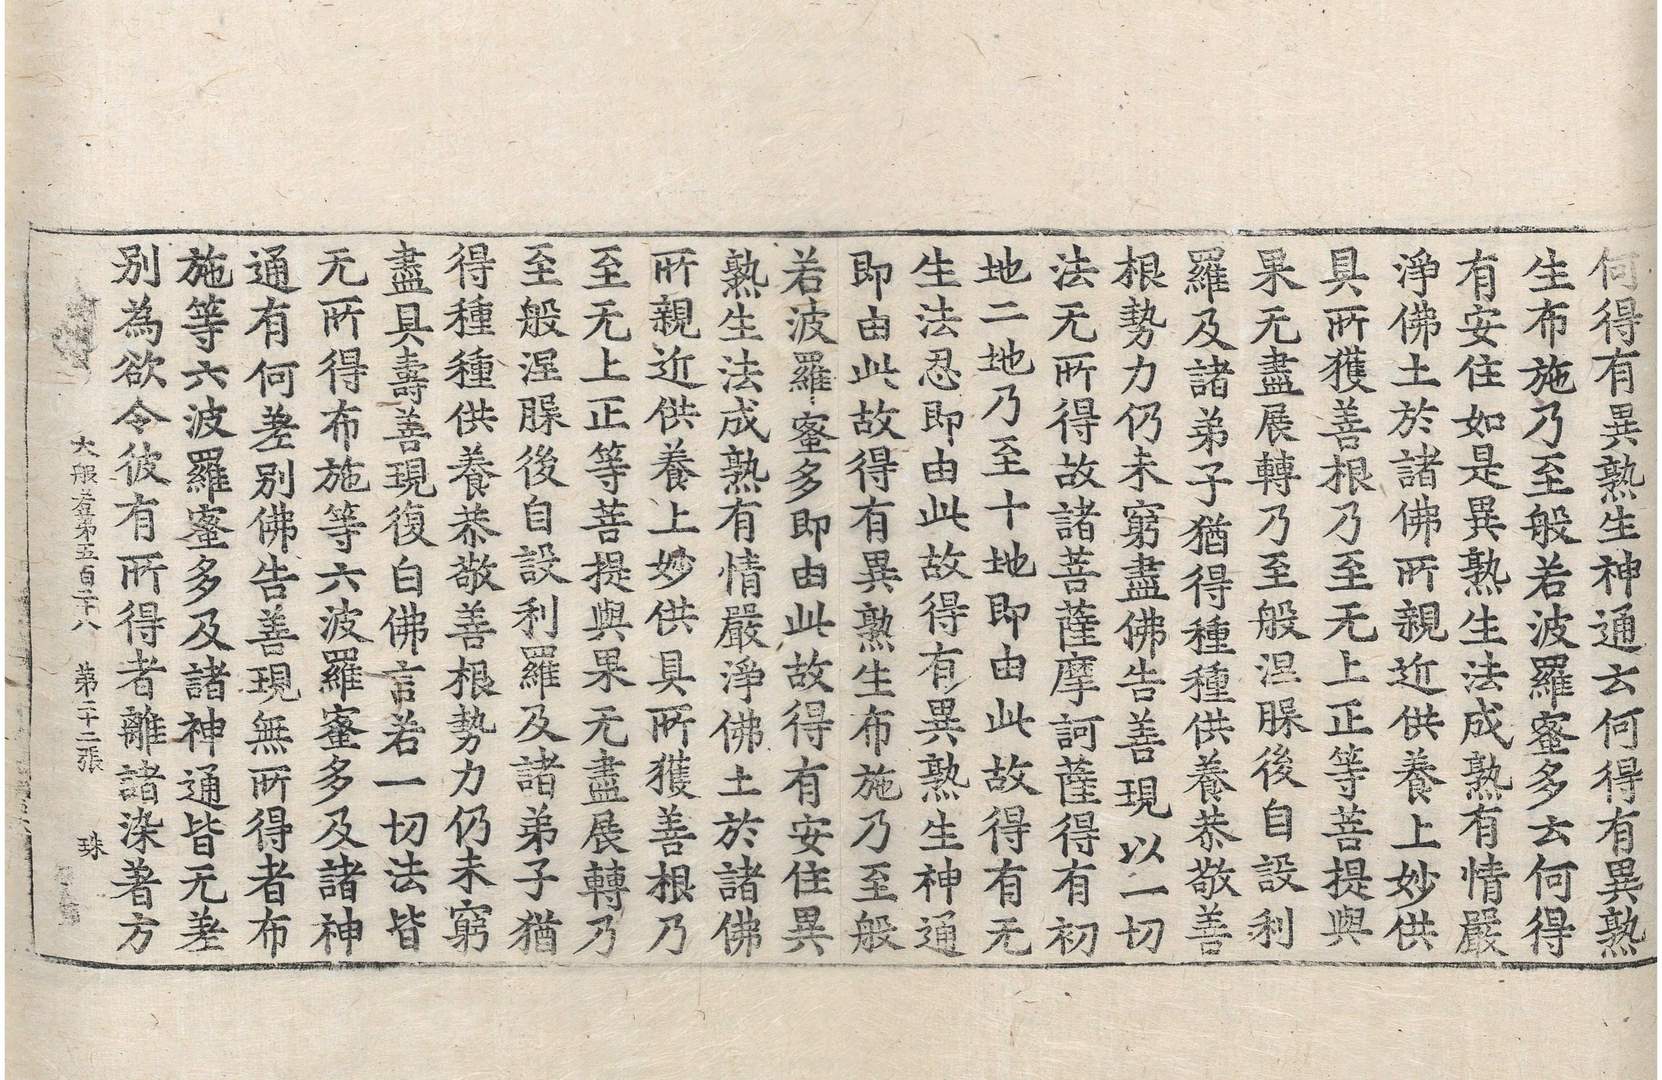 何得有異熟生神通云何得有異熟
生布施乃至般若波羅蜜多云何得
有安住如是異熟生法成熟有情嚴
淨佛土於諸佛所親近供養上妙供
具所獲善根乃至无上正等菩提與
果无盡展轉乃至般涅腺後自設利
羅及諸弟子猶得種種供養恭敬善
根勢力仍未窮盡佛告善現以一切
法无所得故諸菩薩摩訶薩得有初
地二地乃至十地即由此故得有无
生法忍即由此故得有異熟生神通
即由此故得有異熟生布施乃至般
若波羅蜜多即由此故得有安住異
熟生法成熟有情嚴淨佛土於諸佛
所親近供養上妙供具所獲善根乃
至无上正等菩提與果无盡展轉乃
至般涅腺後自設利羅及諸弟子猶
得種種供養恭敬善根勢力仍未窮
盡具壽善現復白佛言若一切法皆
无所得布施等六波羅蜜多及諸神
通有何差別佛告善現無所得者布
施等六波羅蜜多及諸神通皆无差
別為欲令彼有所得者離諸染著方
大般若第五百二十八 第二十二張 珠